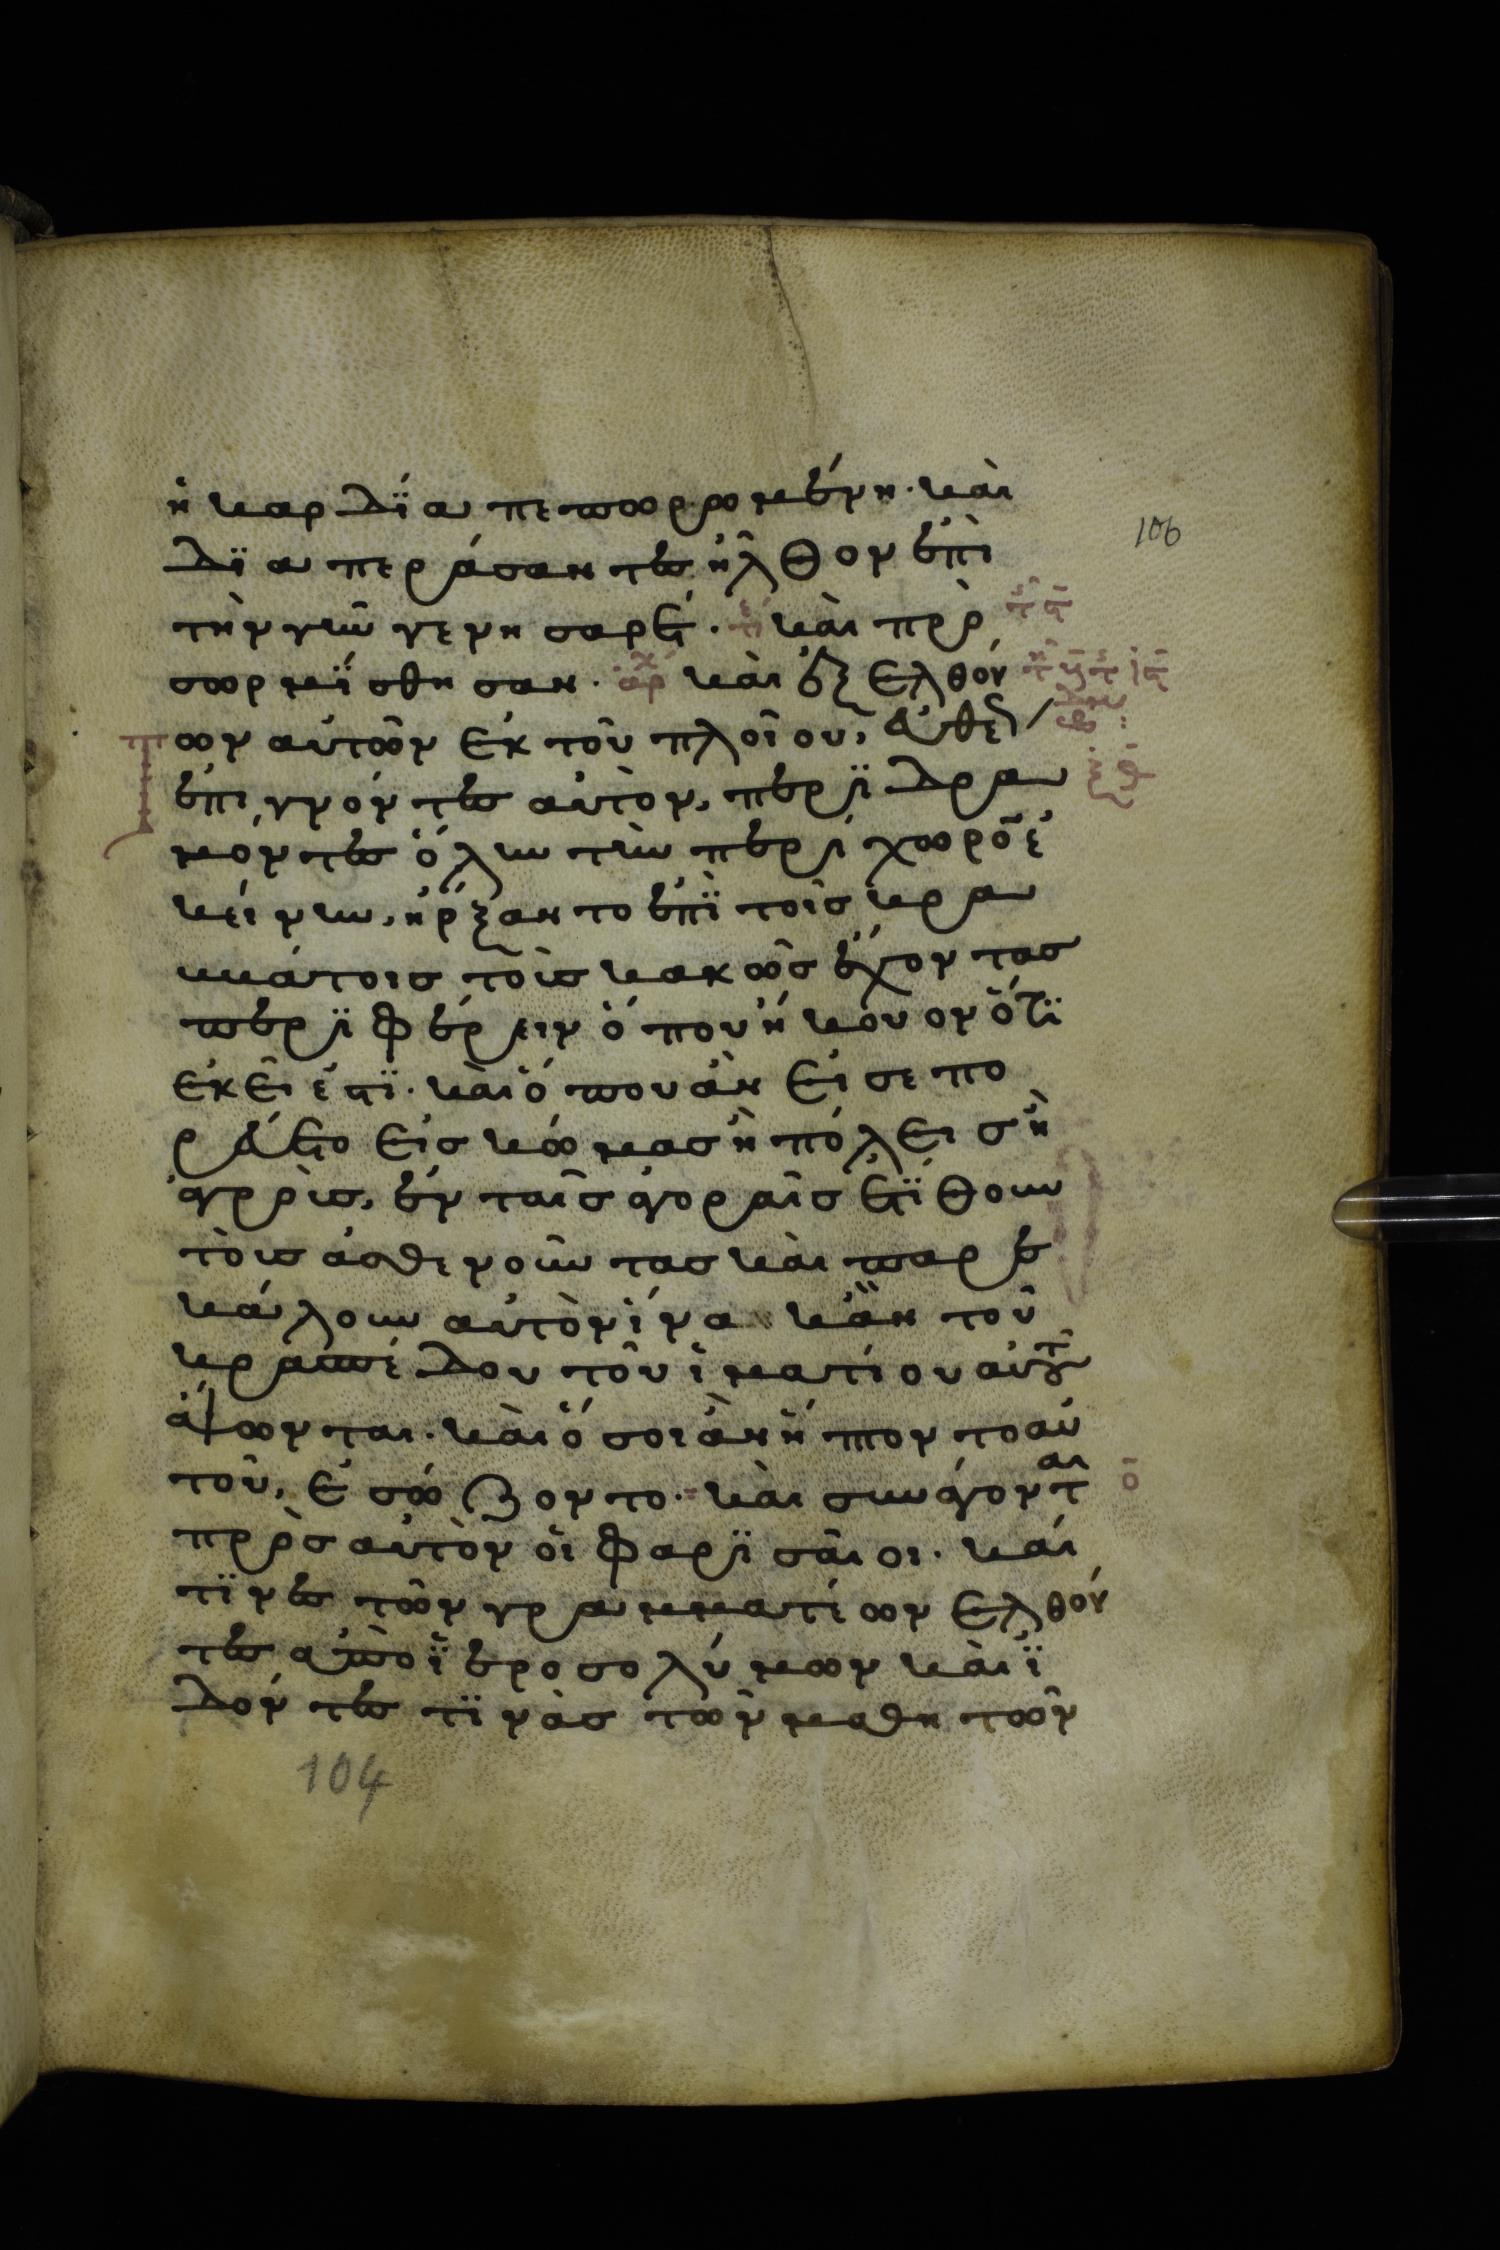 ἡ καρδΐα πεπωρρωμένη· καὶ
δϊαπεράσαντες ἦλθον ἐπὶ
τὴν γῆν γενησαρέτ· τέ καὶ πρὸ
σωρμΐσθησαν· ἀρχ καὶ ἐξελθόν
των αὐτῶν ἐκ τοῦ πλοίου, εὐθέ
ἐπιγνόντες αὐτὸν, περϊδρα
μόντες ὅλην τὴν περίχωρον ἐ
κείνην, ἤρξαντο ἐπῒ τοῖς κρα
ββάτοις τοὺς κακῶς ἔχοντας
περϊφέρειν ὅπου ἤκουον ὅτϊ
ἐκεῖ ἐστϊ· καὶ ὅπου ἂν εἰσεπο
ρεύετο εἰς κώμας ἢ πόλεις ἢ
ἀγροὺς, ἐν ταῖς ἀγοραῖς ἐτΐθουν
τοὺς ἀσθενοῦντας καὶ παρε
κάλουν αὐτὸν ἵνα κἂν τοῦ
κρασπέδου τοῦ ἱματίου αὐτοῦ
ἅψωνται· καὶ ὅσοι ἂν ἥπτοντο αὐ
τοῦ, ἐσώζοντο· καὶ συνάγονται
πρὸς αὐτὸν οἱ φαρϊσαῖοι· καί
τϊνες τῶν γραμματέων ἐλθόν
τες ἀπὸ ἱεροσολύμων καὶ ἰ
δόντες τϊνὰς τῶν μαθητῶν
106
104